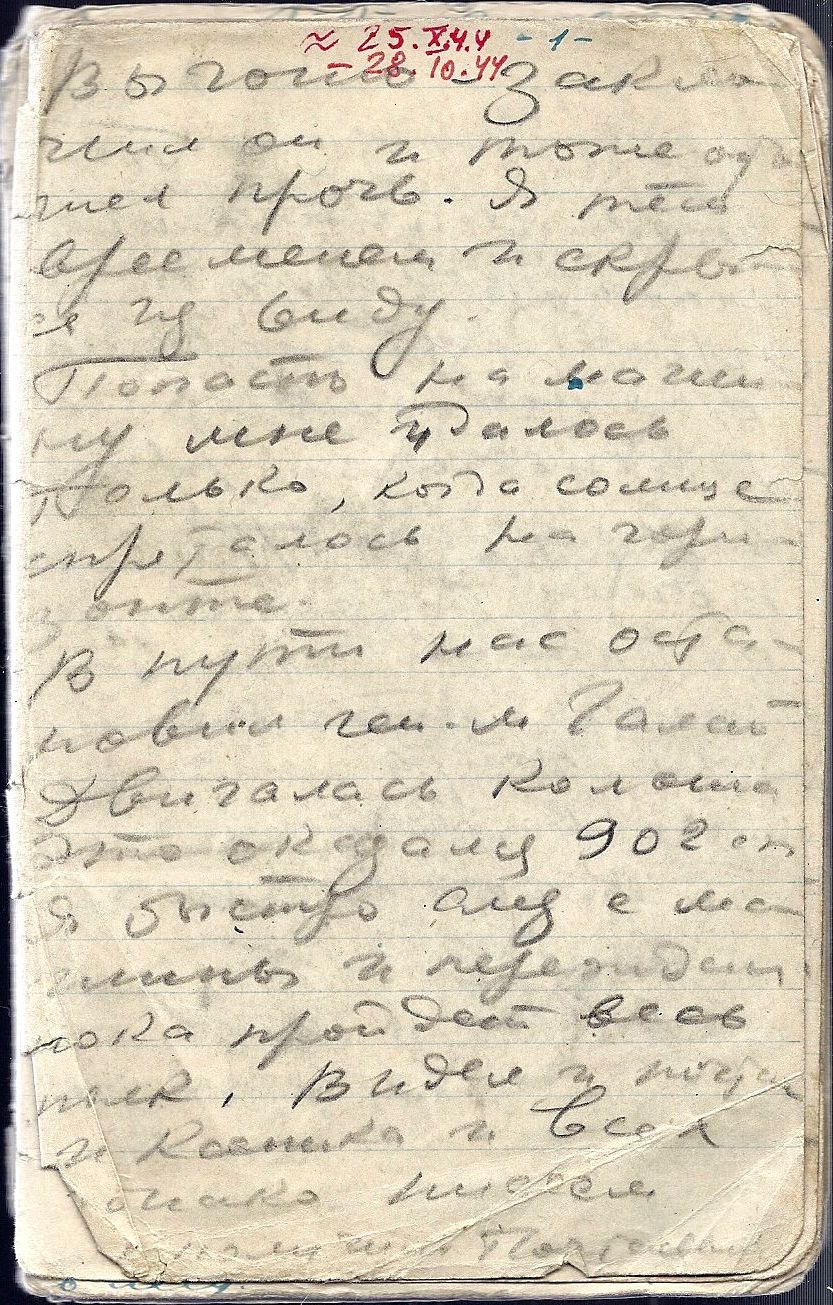 ≈ 25.X.44 - 1 -
- 28.10.44
Выгоню - заклю-
чил он и тоже ото-
шел прочь. Я тем
временем и скрыл-
ся из виду.
Попасть на маши-
ну мне удалось
только, когда солнце
пряталось на гори-
зонте.
В пути нас оста-
новил ген.-м Галай
Двигалась колонна
Это оказался 902 сп
Я быстро слез с ма-
шины и пережидал
пока пройдет весь
полк. Видел и
и и всех
однако